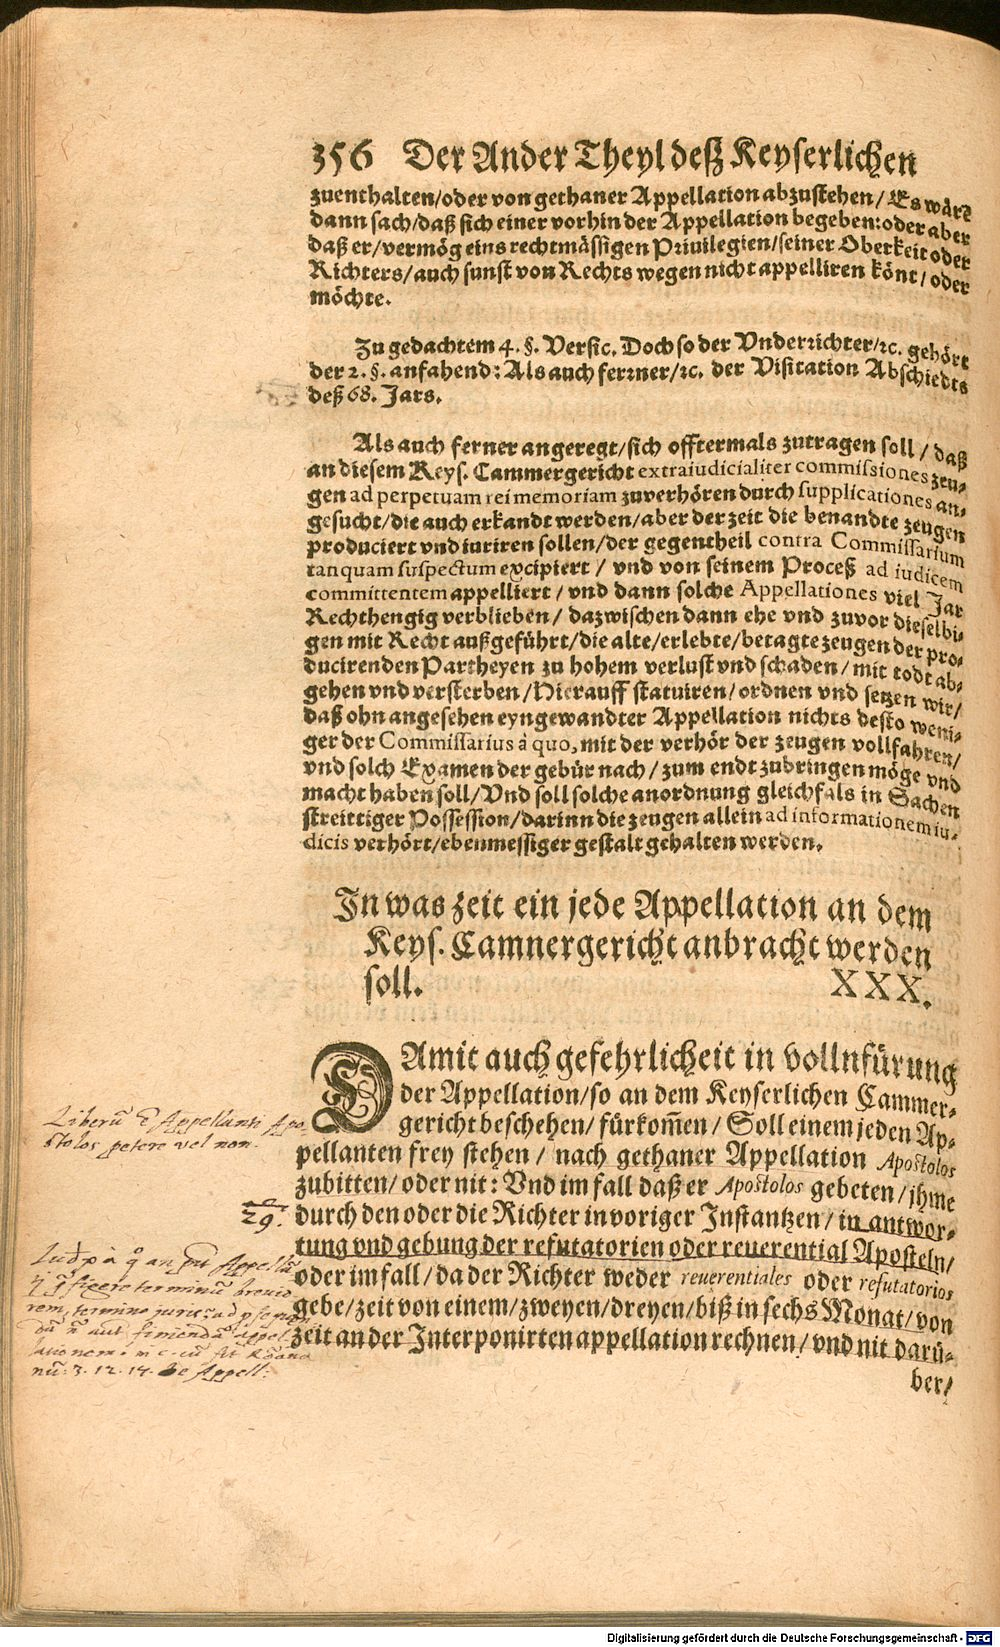 356 Der Ander Theyl deß Keyserlichen
zuenthalten/oder von gethaner Appellation abzustehen/ Es wär
dann sach/daß sich einer vorhin der Appellation begeben: oder aber
daß er/vermög eins rechtmässigen Priuilegien/seiner Oberkeit oder
Richters/auch sunst von Rechts wegen nicht appelliren könt/ oder
möchte.
Zu gedachtem 4. §. Versic. Doch so der Vnderrichter/ꝛc. gehört
der 2. §. anfahend: Als auch ferrner/ꝛc. der Visitation Abschiedts
deß 68. Jars.
Als auch ferner angeregt/sich offtermals zutragen soll / daß
an diesem Keys. Cammergericht extraiudicialiter commissiones zeu-
gen ad perpetuam rei memoriam zuverhören durch supplicationes an-
gesucht/die auch erkandt werden/aber der zeit die benandte zeugen
produciert vnd iuriren sollen/der gegentheil contra Commissarium
tanquam suspectum excipiert / vnd von seinem Proceß ad iudicem
committentem appelliert / vnd dann solche Appellationes viel Jar
Rechthengig verblieben/ dazwischen dann ehe vnd zuvor dieselbi-
gen mit Recht außgeführt/die alte/erlebte/betagte zeugen der pro-
ducirenden Partheyen zu hohem verlust vnd schaden/ mit todt ab-
gehen vnd versterben/Hierauff statuiren/ordnen vnd setzen wir/
daß ohn angesehen eyngewandter Appellation nichts desto weni-
ger der Commissarius à quo, mit der verhör der zeugen vollfahren/
vnd solch Examen der gebür nach/ zum endt zubringen möge vnd
macht haben soll/Vnd soll solche anordnung gleichfals in Sachen
streittiger Possession/darinn die zeugen allein ad informationem iu-
dicis verhört/ebenmessiger gestalt gehalten werden.
In was zeit ein jede Appellation an dem
Keys. Camnergericht anbracht werden
soll. XXX.
DAmit auch gefehrlicheit in vollnfürung
der Appellation/so an dem Keyserlichen Cammer-
gericht beschehen/ fürkom̃en/ Soll einem jeden Ap-
pellanten frey stehen / nach gethaner Appellation Apostolos
zubitten/ oder nit: Vnd im fall daß er Apostolos gebeten/ jhme
durch den oder die Richter in voriger Instantzen/ in antwor-
tung vnd gebung der refutatorien oder reuerential Aposteln/
oder im fall/ da der Richter weder reuerentiales oder refutatorios
gebe/zeit von einem/zweyen/dreyen/biß in sechs Monat/ von
zeit an der Interponirten appellation rechnen/ vnd nit darü-
ber/
Liberū ē Appellanti Apo-
stolos petere vel non.
29.
nū: 3. 12. 14. de Appell:
Digitalisierung gefördert durch die Deutsche Forschungsgemeinschaft - DFG